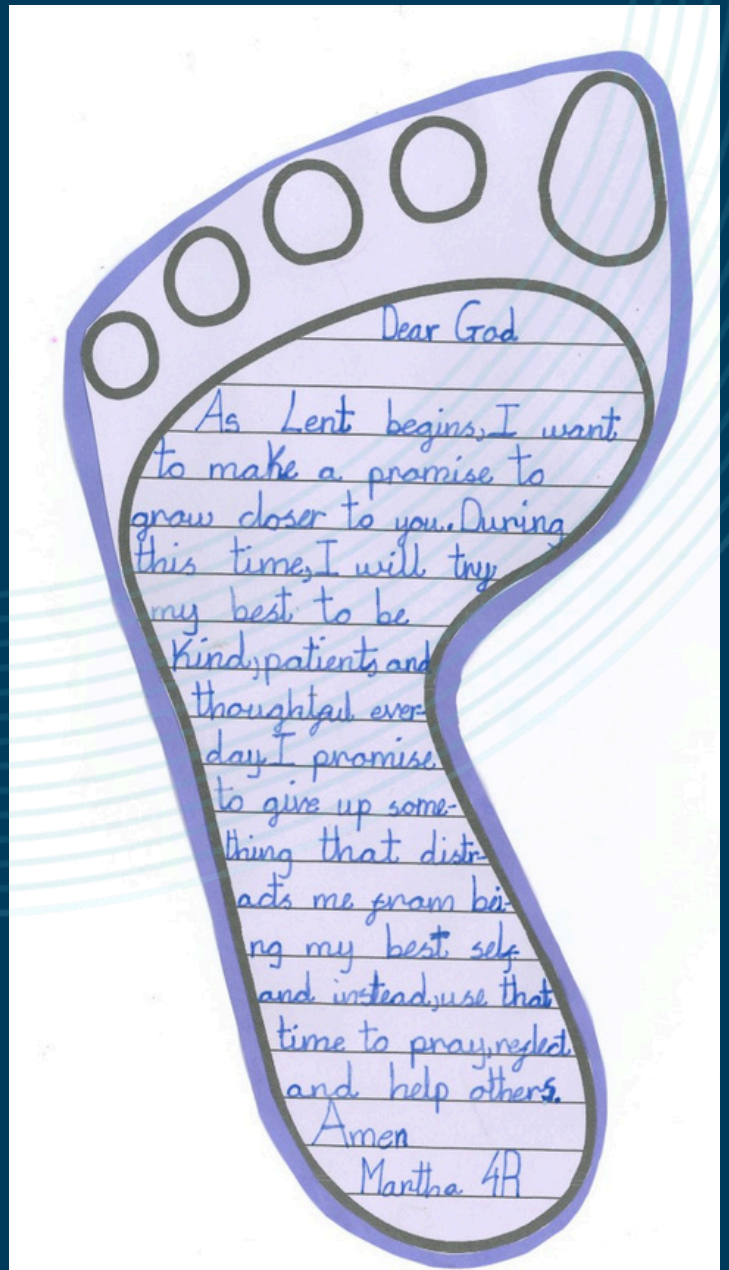 Dear God
As Lent begins, I want
to make a promise to
grow closer to you. During
this time, I will try
my best to be
kind, patients and
thoughtful ever-
day I promise
to give up some-
thing that distr-
acts me from bei-
ng my best self
and instead, use that
time to pray, reflect
and help others.
Amen
Martha 4R